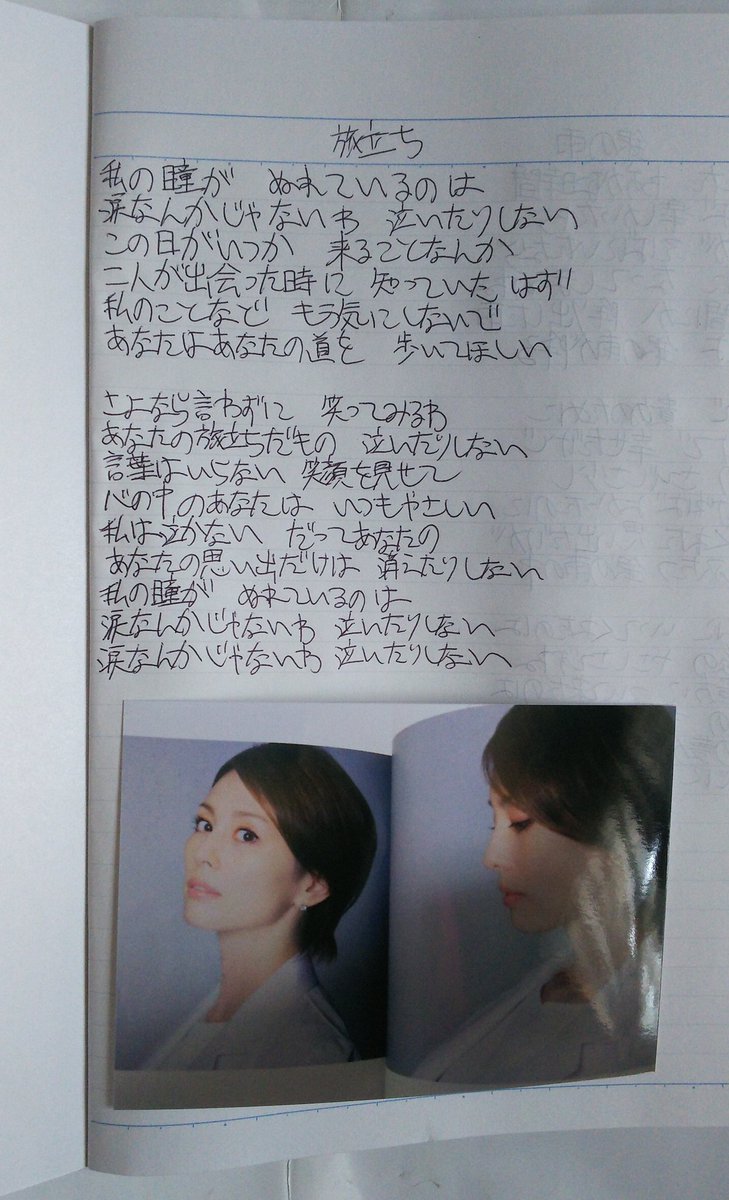 旅立ち
私の瞳が ぬれているのは
涙なんかじゃないわ 泣いたりしない
この日がいつか 来ることなんか
二人が出会った時に 知っていたはず
私のことなど もう気にしないで
あなたはあなたの道を 歩いてほしい
さよなら言わずに 笑ってみるわ
あなたの旅立ちだもの 泣いたりしない
言葉はいらない 笑顔を見せて
心の中のあなたは いつもやさしい
私は泣かない だってあなたの
あなたの思い出だけは 消えたりしない
私の瞳が ぬれているのは
涙なんかじゃないわ 泣いたりしない
涙なんかじゃないわ 泣いたりしない